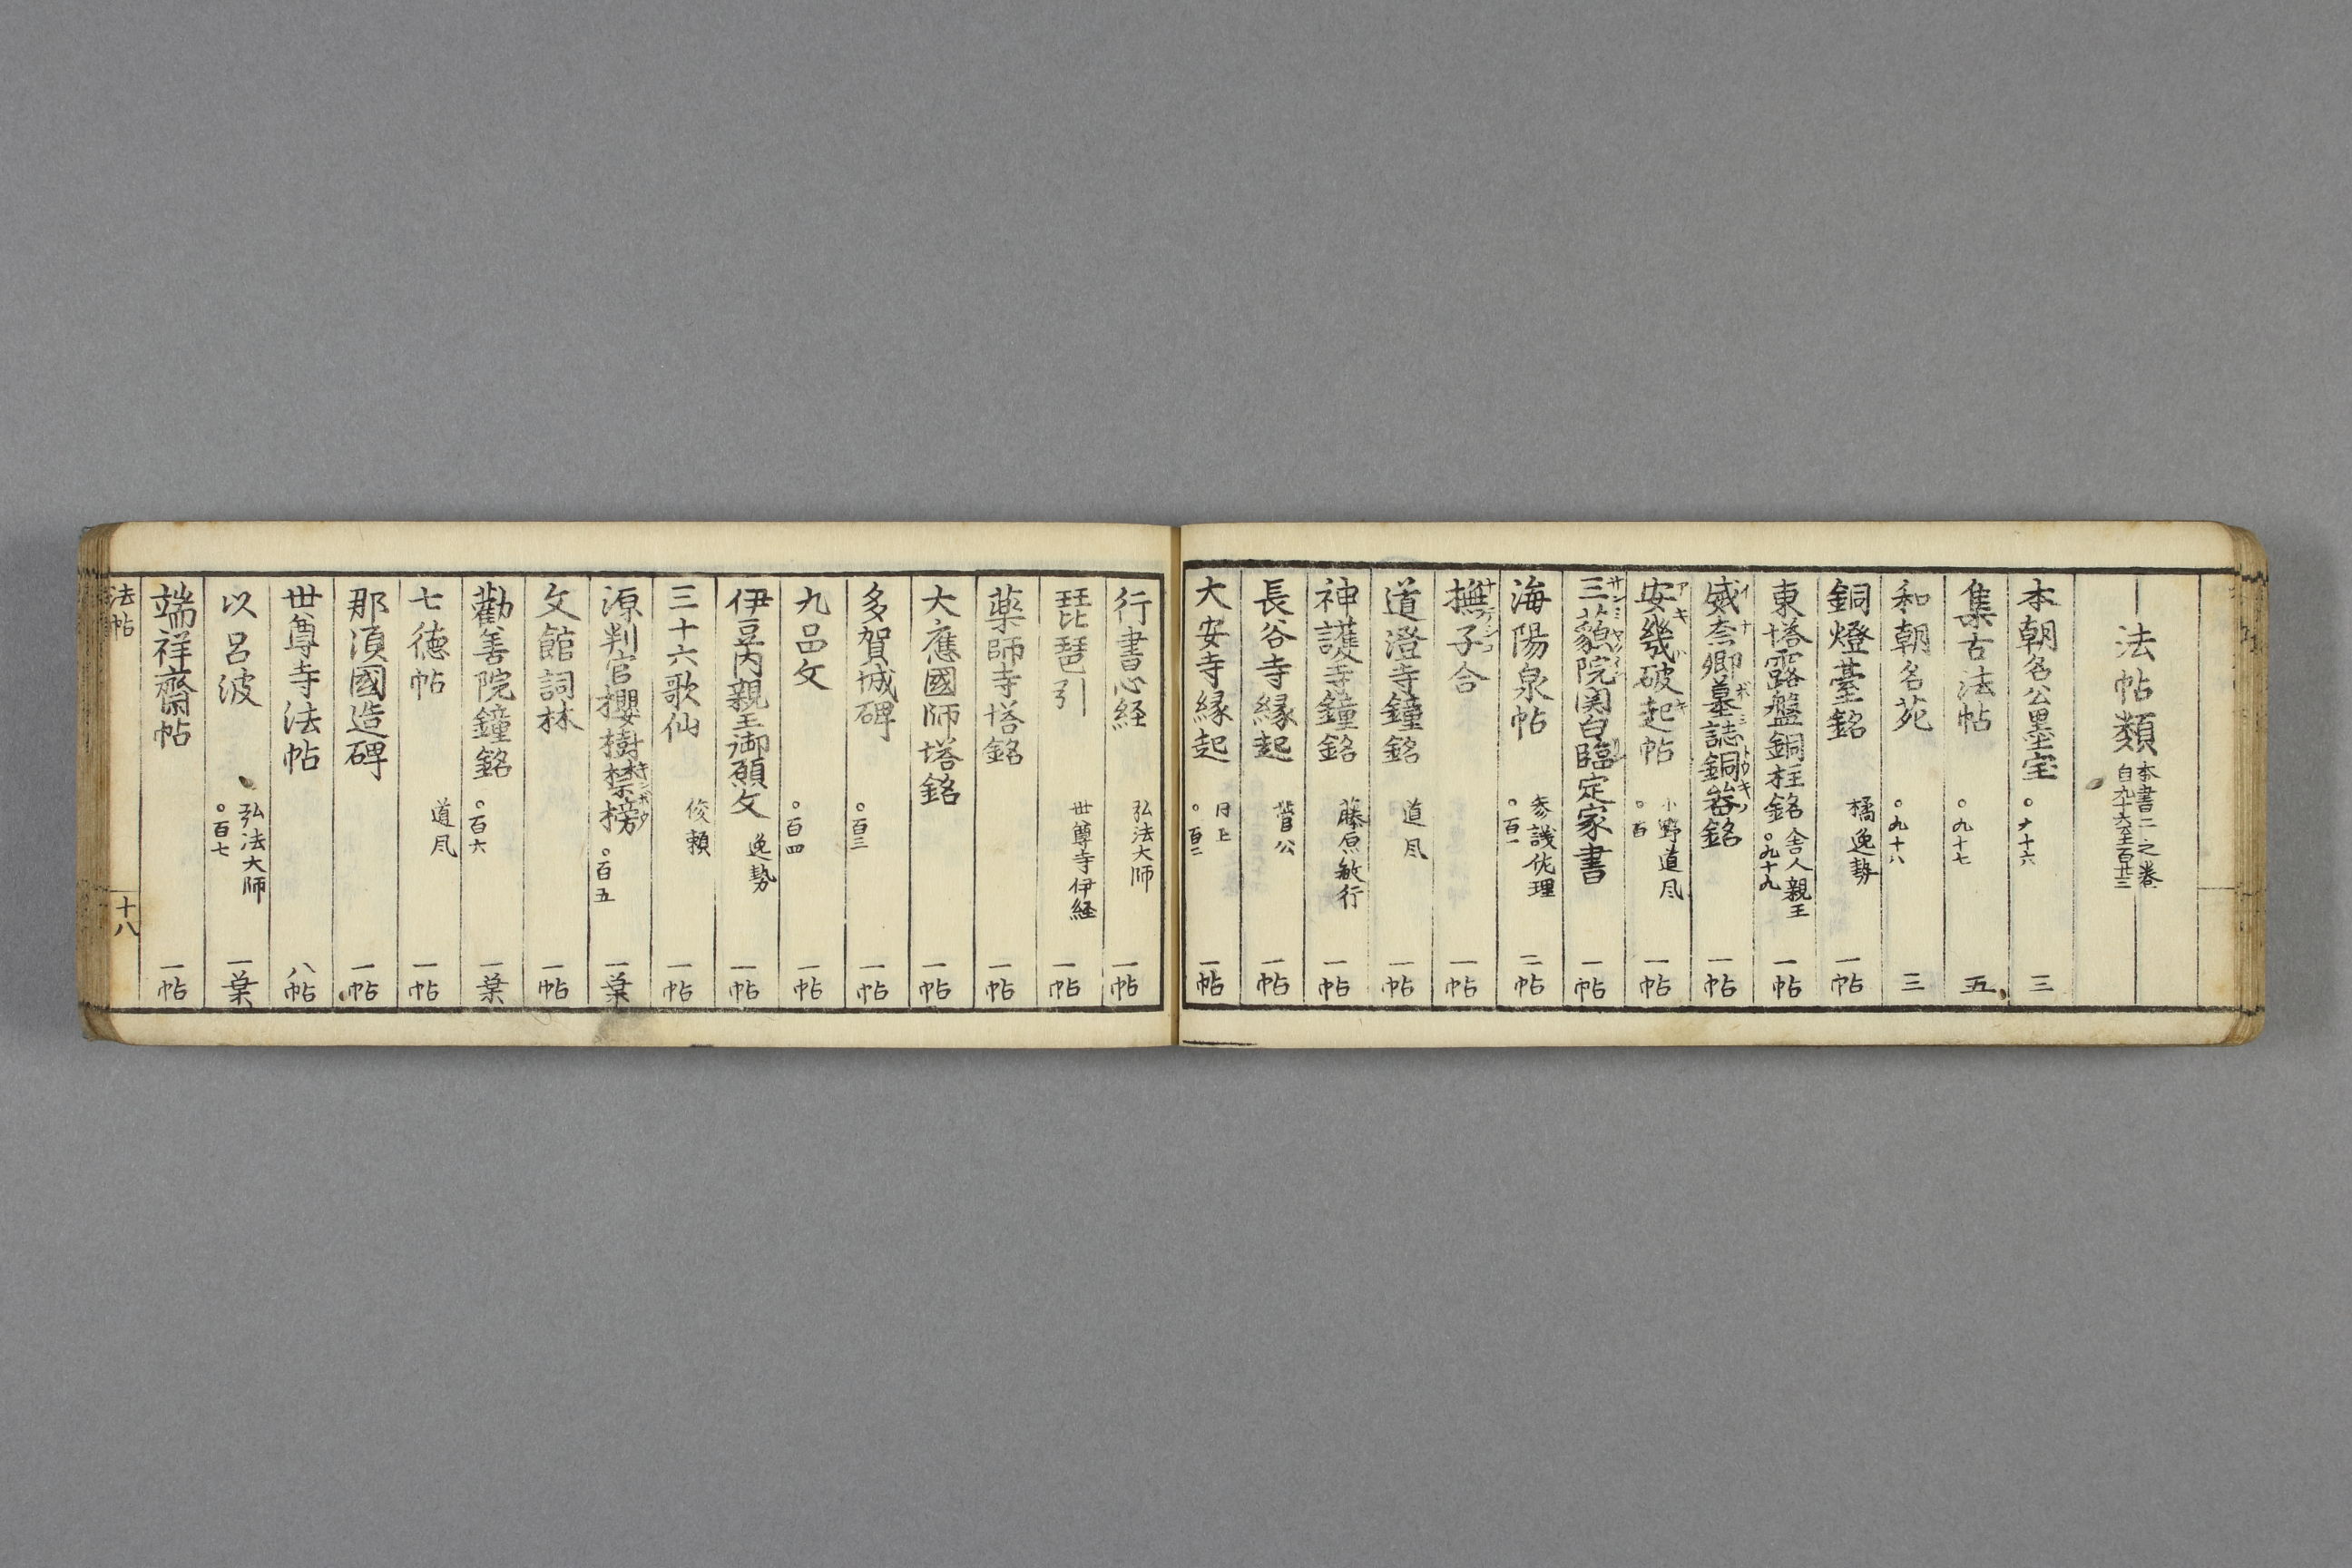 法帖類 本書二之巻 自九十六至百廿三
本朝名公墨宝 ○九十六 三
集古法帖 ○九十七 五
和朝名苑 ○九十八 三
銅燈臺銘 橘逸勢 一帖
東塔露盤銅柱銘 舎人親王 ○九十九 一帖
威奈卿墓誌銅器銘 イナ ボシ トウキノ 一帖
安幾破起帖 アキハキ 小野道凨 ○百 一帖
三藐院関白臨定家書 サンミヤクイン 一帖
海陽泉帖 参議佐理 ○百一 二帖
撫子合 ナデシコ 一帖
道澄寺鐘銘 道凨 一帖
神護寺鐘銘 藤原敏行 一帖
長谷寺縁起 菅公 一帖
大安寺縁起 同上 ○百二 一帖
行書心経 弘法大師 一帖
琵琶引 世尊寺伊経 一帖
薬師寺塔銘 一帖
大應國師塔銘 一帖
多賀城碑 ○百三 一帖
九品文 ○百四 一帖
伊豆内親王御願文 逸勢 一帖
三十六歌仙 俊頼 一帖
源判官櫻樹禁榜 キンボウ ○百五 一葉
文館詞林 一帖
勸善院鐘銘 ○百六 一葉
七德帖 道凨 一帖
那湏國造碑 一帖
世尊寺法帖 八帖
以呂波 弘法大師 ○百七 一葉
端祥齋帖 一帖
法帖 十八